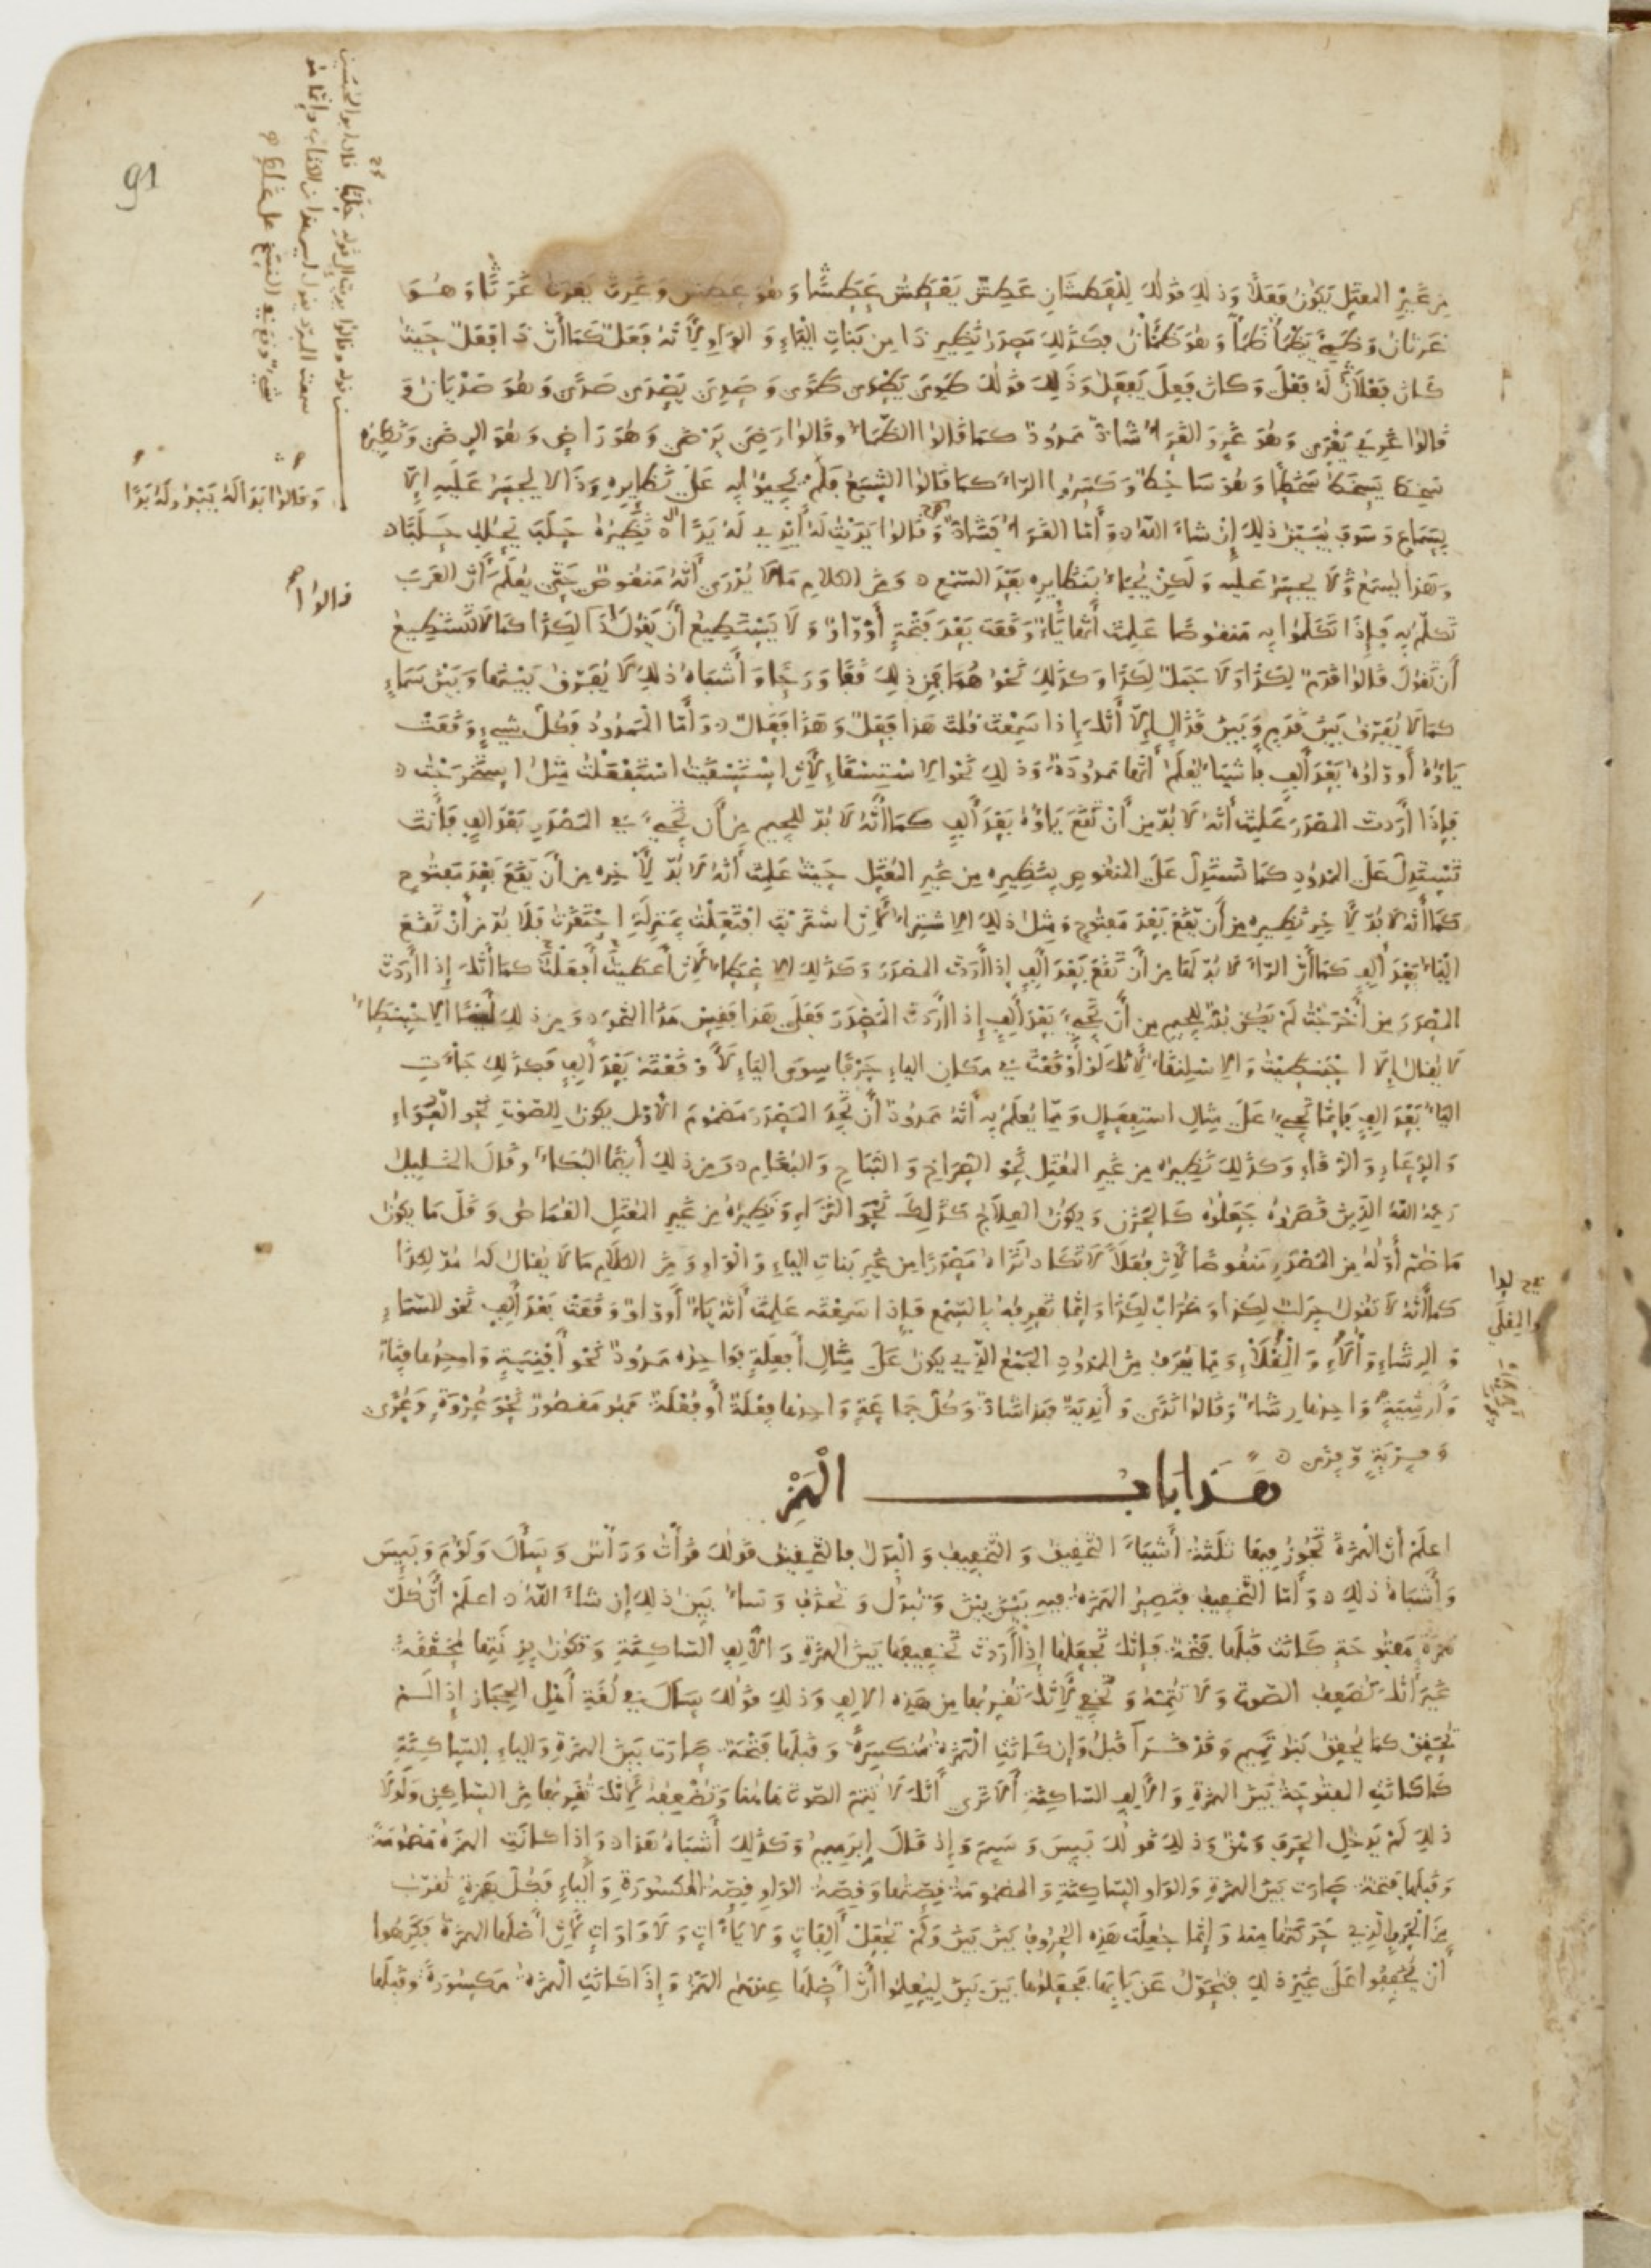 من غير المعتل يكون فَعَلاً وذلك قولك للعطشان عَطِشَ يَعْطَشُ عَطَشًا وهو عطش وغرث يغرث غَرَثًا وهو
غرثان وظمئ يظمأ ظمأ وهو ظمآن فكذلك مصدر نظير ذا من بنات الياء والواو لأنه فَعَلٌ كما أن ذا فعل حيث
كان فعلان له فعلى وكان فعل يفعل وذلك قولك طوي يطوى طوى وصدي يصدى صدى وهو صديان و
قالوا غري يغرى وهو غرٍ والغراء شاذ ممدود كما قالوا الظماء وقالوا رضي يرضى وهو راض وهو الرضى ونظيره
سخط يسخط سخطا وهو ساخط وكسروا الراء كما قالوا الشبع فلم يجيئوا به على نظايره وذا لا يجسر عليه إلا
بسماع وسوف يبين ذلك إن شاء الله وأما الغراء فشاذ وقالوا بدا له يبدو له بدا نظيره حلب يحلب حلبا
وهذا يسمع ولا يجسر عليه ولكن يجاء بنظايره بعد السمع ومن الكلام ما لا يدرى أنه منقوص حتى يعلم أن العرب
تكلم به فإذا تكلموا به منقوصا علمت أنها ياء وقعت بعد فتحة أو واو ولا يستطيع أن يقول ذا لكذا كما لا تستطيع
أن تقول قالوا قدم لكذا ولا جمل لكذا وكذلك نحوهما فمن ذلك قفا ورحا وأشباه ذلك لا يفرق بينها وبين سماء
كما لا يفرق بين قدم وبين قذال إلا أنك إذا سمعت قلت هذا فعل وهذا فعال وأما الممدود فكل شيء وقعت
ياؤه أو واوه بعد ألف فأشياء يعلم أنها ممدودة وذلك نحو الاستسقاء لأن استسقيت استفعلت مثل استخرجت
فإذا أردت المصدر علمت أنه لا بد من أن تقع ياؤه بعد ألف كما أنه لا بد للجيم من أن تجيء في المصدر بعد ألف فأنت
تستدل على الممدود كما تستدل على المنقوص بنظيره من غير المعتل حيث علمت أنه لا بد لآخره من أن يقع بعد مفتوح
كما أنه لا بد لآخر نظيره من أن يقع بعد مفتوح ومثل ذلك الاشتراء لأن اشتريت افتعلت بمنزلة احتقرت فلا بد من أن تقع
الياء بعد ألف كما أن الراء لا بد لها من أن تقع بعد ألف إذا أردت المصدر وكذلك الإعطاء لأن أعطيت أفعلت كما أنك إذا أردت
المصدر من أخرجت لم يكن بد للجيم من أن تجيء بعد ألف إذا أردت المصدر فعلى هذا فقس هذا النحو ومن ذلك أيضا الاحبنطاء
لا يقال إلا احبنطيت والاسلنقاء لأنك لو أوقعت في مكان الياء حرفا سوى الياء لأوقعته بعد ألف فكذلك جاءت
الياء بعد ألف فإنما تجيء على مثال استفعال ومما يعلم به أنه ممدود أن تجد المصدر مضموم الأول يكون للصوت نحو العواء
والدعاء والزقاء وكذلك نظيره من غير المعتل نحو الصراخ والنباح والبغام ومن ذلك أيضا البكاء وقال الخليل
رحمه الله الذين قصروه جعلوه كالحزن ويكون العلاج كذلك نحو النزاء ونظيره من غير المعتل القماص وقل ما يكون
ما ضم أوله من المصدر منقوصا لأن فعلا لا تكاد تراه مصدرا من غير بنات الياء والواو ومن الكلام ما لا يقال له مد لكذا
كما أنه لا تقول جراب لكذا وغراب لكذا وإنما تعرفه بالسمع فإذا سمعته علمت أنه ياء أو واو وقعت بعد ألف نحو السماء
والرشاء وألألاء والمقلاء ومما يعرف من الممدود الجمع الذي يكون على مثال أفعلة فواحده ممدود نحو أفنية واحدها فناء
وأرشية واحدها رشاء وقالوا ندى وأندية فهذا شاذ وكل جماعة واحدها فعلة أو فعلة فهو مقصور نحو عروة وعرى
وفرية وفرى
هذا باب الهمز
اعلم أن الهمزة تجوز فيها ثلثة أشياء التحقيق والتخفيف والبدل فالتحقيق قولك قرأت ورأس وسأل ولؤم وبئس
وأشباه ذلك وأما التخفيف فتصير الهمزة فيه بين بين وتبدل وتحذف وسأبين ذلك إن شاء الله اعلم أن كل
همزة مفتوحة كانت قبلها فتحة فإنك تجعلها إذا أردت تخفيفها بين الهمزة والألف الساكنة وتكون بزنتها مخففة
غير أنك تضعف الصوت ولا تتمه وتخفي لأنك تقربها من هذه الألف وذلك قولك سال في لغة أهل الحجاز إذا لم
تحقق كما يحقق بنو تميم وقد قرا قبل وإن كانت الهمزة منكسرة وقبلها فتحة صارت بين الهمزة والياء الساكنة
كما كانت المفتوحة بين الهمزة والألف الساكنة ألا ترى أنك لا تتم الصوت هاهنا وتضعفه لأنك تقربها من الساكن ولولا
ذلك لم يدخل الحرف وهن وذلك قولك يئس وسئم وإذ قال إبرهيم وكذلك أشباه هذا وإذا كانت الهمزة مضمومة
وقبلها فتحة صارت بين الهمزة والواو الساكنة والمضمومة قصتها وقصة الواو قصة المكسورة والياء فكل همزة تقرب
من الحرف الذي حركتها منه وإنما جعلت هذه الحروف بين بين ولم تجعل ألفات ولا ياءات ولا واوات لأن أصلها الهمزة فكرهوا
أن يخففوا على غير ذلك فتحول عن بابها فجعلوها بين بين ليعلموا أن أصلها عندهم الهمز وإذا كانت الهمزة مكسورة وقبلها
91
وقالوا بدا له يبدو له بدا
قالوا